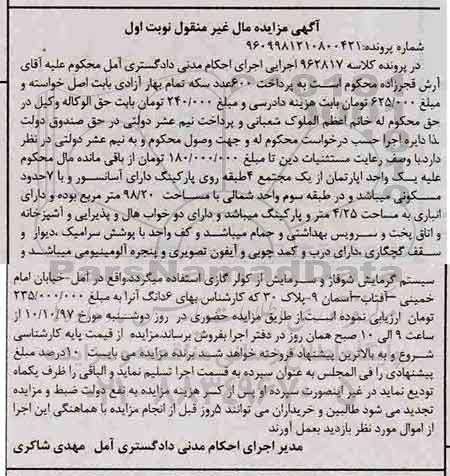 آگهی مزایده مال غیر منقول نوبت اول
شماره پرونده:۹۶۰۹۹۸۱۲۱۰۸۰۰۴۲۱
در پرونده کلاسه ۹۶۲۸۱۷ اجرایی اجرای احکام مدنی دادگستری آمل محکوم علیه آقای
آرش قجرزاده محکوم است به پرداخت ۶۰۰عدد سکه تمام بهار آزادی بابت اصل خواسته و
مبلغ ۶۲۵/۰۰۰ تومان بابت هزینه دادرسی و مبلغ ۲۴۰/۰۰۰ تومان بابت حق الوکاله وکیل در
حق محکوم له خانم اعظم الملوک شعبانی و پرداخت نیم عشر دولتی در حق صندوق دولت
لذا دایره اجرا حسب درخواست محکوم له و جهت وصول محکوم و به نیم عشر دولتی در نظر
دارد.با وصف رعایت مستثنیات دین تا مبلغ ۱۸۰/۰۰۰/۰۰۰ تومان از باقی مانده مال محکوم
علیه یک واحد اپارتمان از یک مجتمع ۴طبقه روی پارکینگ دارای آسانسور و با ۷حدود
مسکونی میباشد و در طبقه سوم واحد شمالی با مساحت ۹۸/۲۰ متر مربع بوده و دارای
انباری به مساحت ۴/۲۵ متر و پارکینگ میباشد و دارای دو خواب هال و پذیرایی و آشپزخانه
و اتاق پخت و سرویس بهداشتی و حمام میباشد و کف واحد با پوشش سرامیک ،دیوار و
سقف گچکاری ،دارای درب و کمد چوبی و آیفون تصویری و پنجره آلومینیومی میباشد و
سیستم گرمایش شوفاژ و سرمایش از کولر گازی استفاده میگردد.واقع در آمل-خیابان امام
خمینی –آفتاب-آسمان ۹-پلاک ۳۰ که کارشناس بهای ۶دانگ آنرا به مبلغ ۲۳۵/۰۰۰/۰۰۰
تومان ارزیابی نموده است.از طریق مزایده حضوری در روز دوشنبه مورخ ۱۰/۱۰/۹۷ از
ساعت ۹ الی ۱۰ صبح همان روز در دفتر اجرا بفروش برساند.مزایده از قیمت پایه کارشناسی
شروع و به بالاترین پیشنهاد فروخته خواهد شد برنده مزایده می بایست ۱۰درصد مبلغ
پیشنهادی را فی المجلس به عنوان سپرده به قسمت اجرا تسلیم نماید و الباقی را ظرف یکماه
تودیع نماید در غیر اینصورت سپرده او پس از کسر هزینه مزایده به نفع دولت ضبط و مزایده
تجدید می شود طالبین و خریداران می توانند ۵روز قبل از انجام مزایده با هماهنگی این اجرا
از اموال مورد نظر بازدید بعمل آورند
مدیر اجرای احکام مدنی دادگستری آمل مهدی شاکری